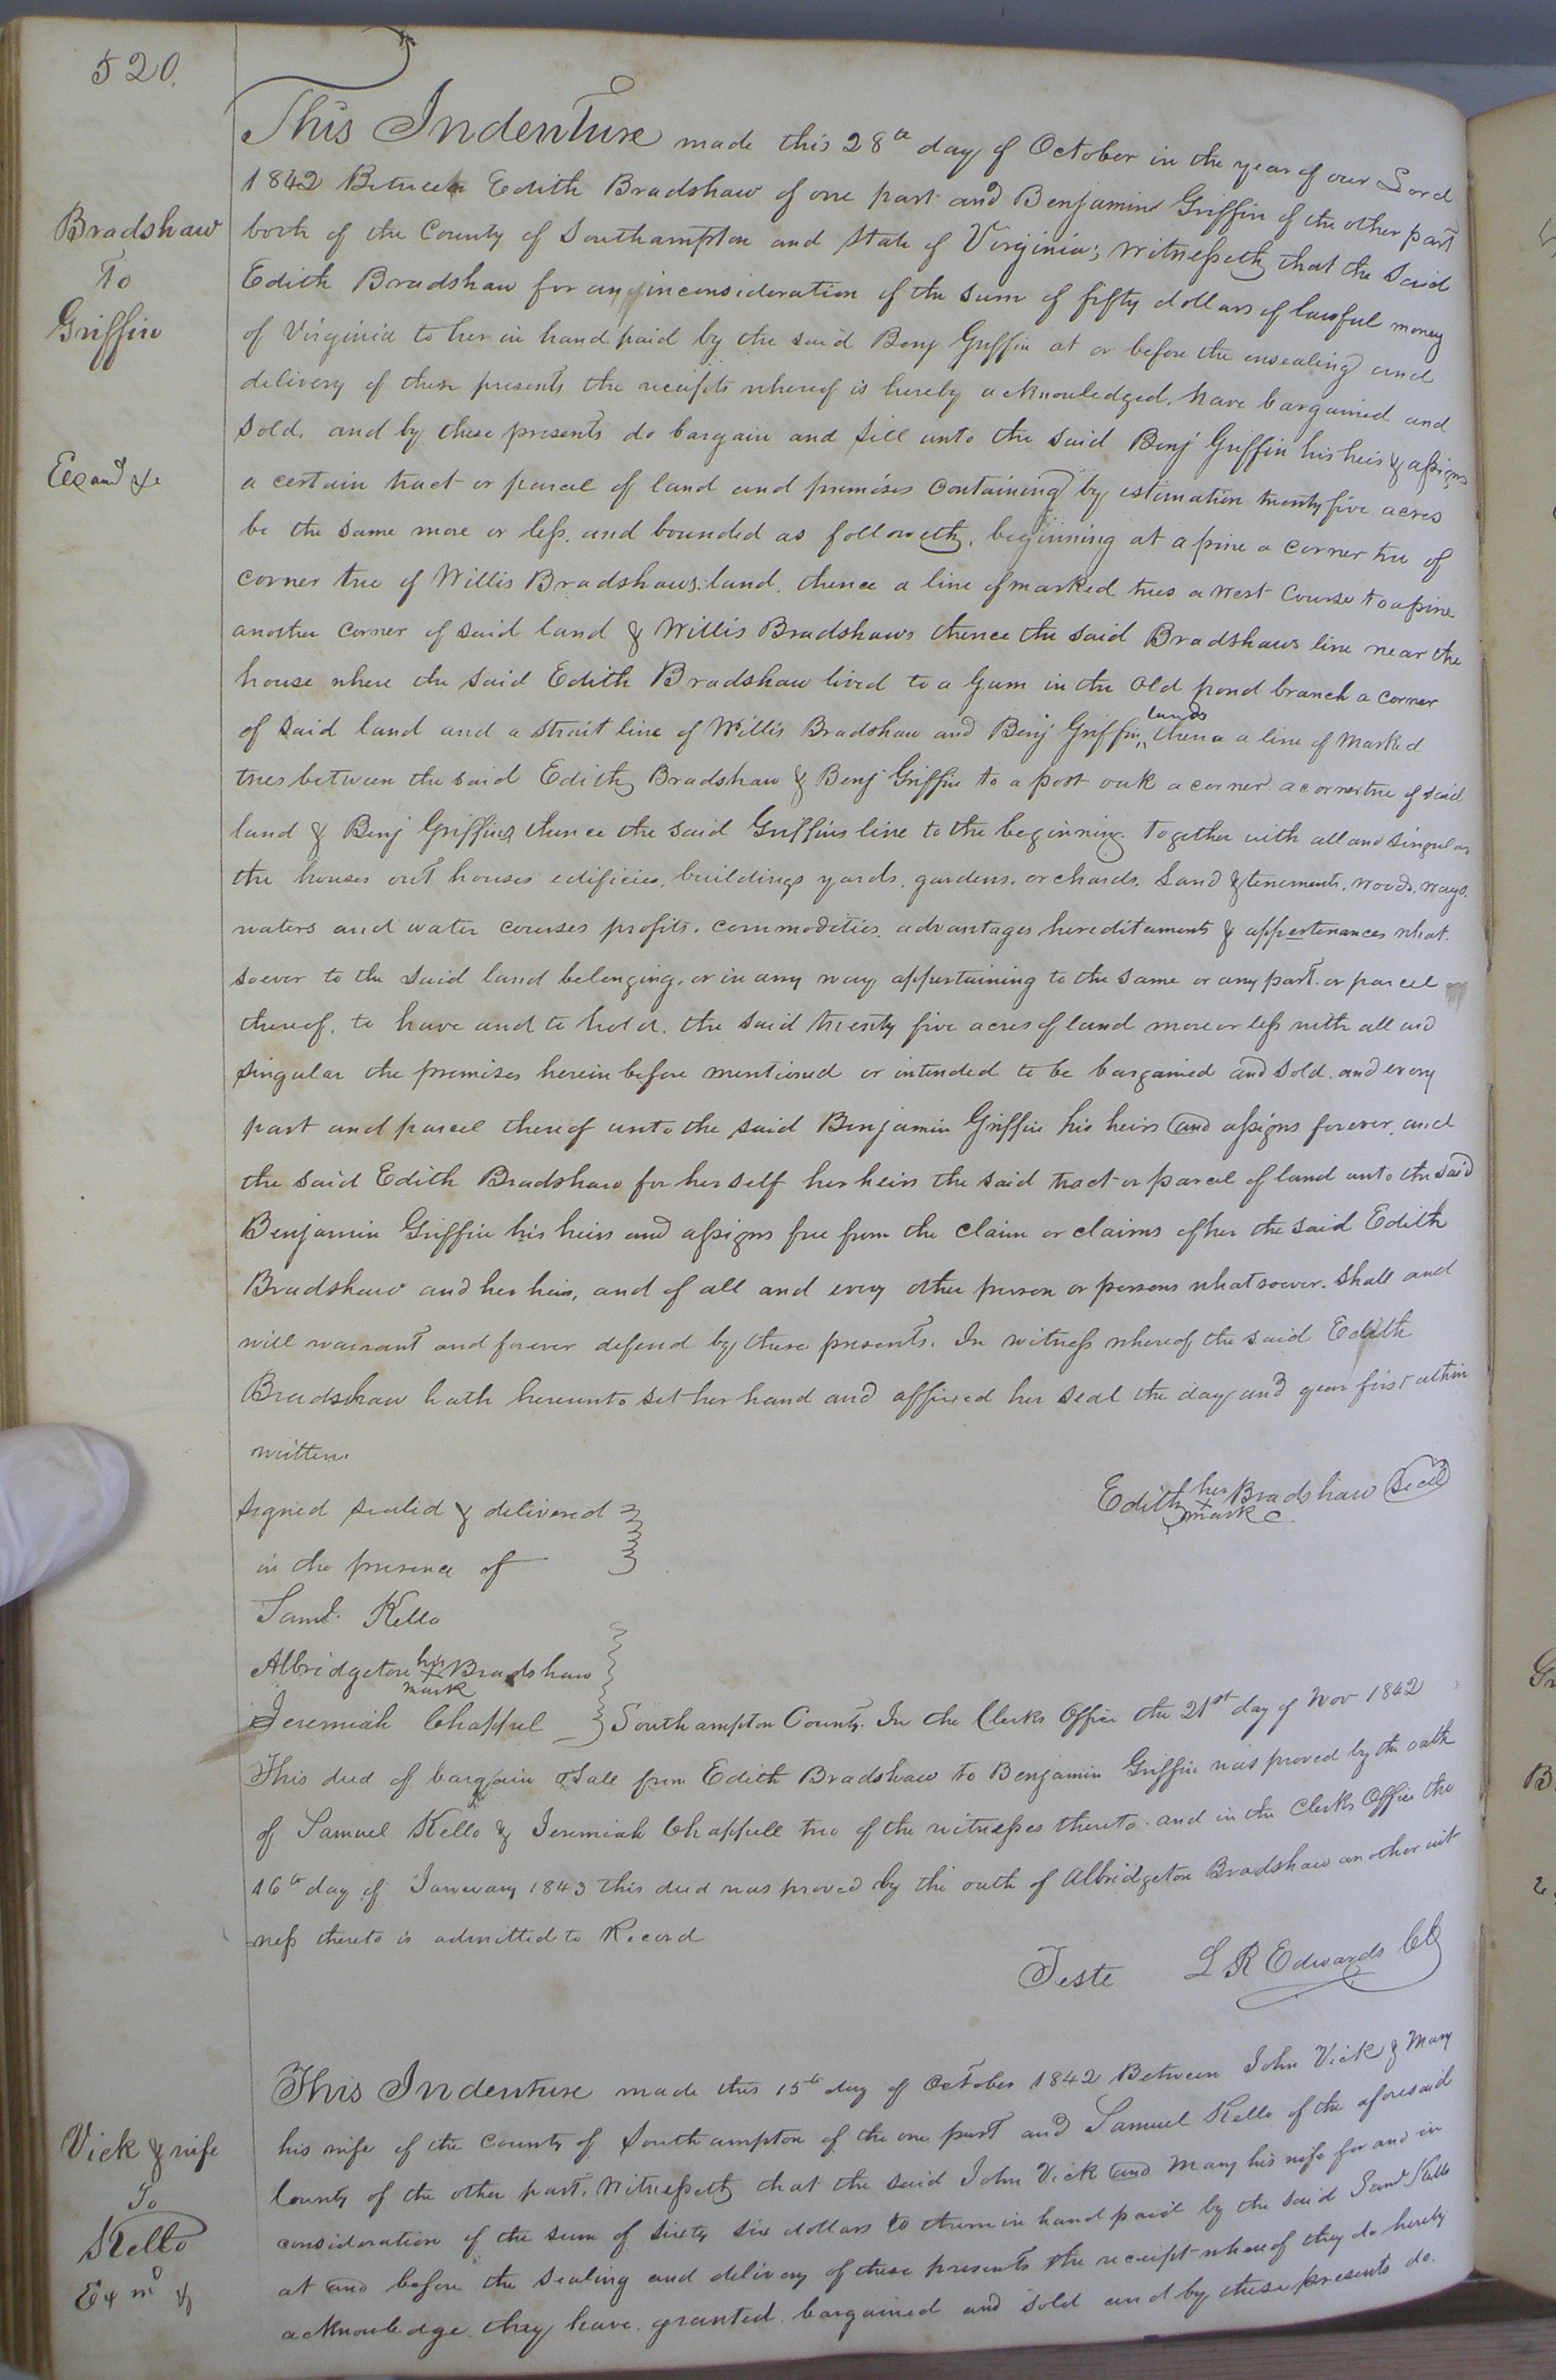 520.
This Indenture made this 28th day of October in the year of our Lord
1842 Between Edith Bradshaw of one part and Benjamine Griffin of the other part
Bradshaw
To
Griffin
both of the County of Southampton and State of Virginia; Witnesseth that the Said
Edith Bradshaw for and in consideration of the sum of fifty dollars of lawful money
of Virginia to her in hand paid by the said Benj Griffin at or before the ensealing and
delivery of these presents the receipts whereof is hereby acknowledged. have bargained and
Sold. and by these presents do bargain and sell unto the said Benj Griffin his heirs & assigns
Exand &c
a certain tract or parcel of land and premises Containing by estimation twenty five acres
be the same more or less. and bounded as followeth. beginning at a pine a corner tree of
corner tree of Willis Bradshaws land. thence a line of marked trees a west Course to a pine
another corner of said land & Willis Bradshaws thence the said Bradshaws line near the
house where the said Edith Bradshaw lived to a Gum in the old pond branch a corner
of said land and a strait line of Willis Bradshaw and Benj Griffin lands thence a line of marked
trees between the said Edith Bradshaw & Benj Griffin to a post oak a corner. a corner tree of said
land & Benj Griffins thence the said Griffins line to the beginning. together with all and singular
the houses out houses edificies, buildings yards. gardens. orchards. Land & tenements. woods. ways.
waters and water courses profits. commodities. advantages hereditaments & appertenances what
soever to the said land belonging. or in any way appertaining to the same or any part. or parcel
thereof. to have and to hold. the said twenty five acres of land more or less with all and
singular the premises herein before mentioned or intended to be bargained and sold. and every
part and parcel thereof unto the said Benjamin Griffin his heirs and assigns forever. and
the said Edith Bradshaw for herself her heirs the said tract or parcel of land unto the said
Benjamin Griffin his heirs and assigns free from the claim or claims of her the said Edith
Bradshaw and her heirs, and of all and every other person or persons whatsoever. Shall and
will warrant and forever defend by these presents. In witness whereof the said Edith
Bradshaw hath hereunto set her hand and affixed her seal the day and year first within
written.
Edith her x mark Bradshaw Seal
Signed sealed & delivered
in the presence of
Saml. Kello
Albridgeton his x mark Bradshaw
Jeremiah Chappel Southampton County. In the Clerks Office the 21st day of Nov 1842
This deed of bargain & Sale from Edith Bradshaw to Benjamin Griffin was proved by the oath
of Samuel Kello & Jeremiah Chappell two of the witnesses thereto. and in the Clerks Office the
16th day of January 1843 this deed was proved by the oath of Albridgeton Bradshaw another wit
=ness thereto is admitted to Record
Teste L R Edwards CC
This Indenture made this 15th day of October 1842 Between John Vick & Mary
his wife of the County of Southampton of the one part and Samuel Kello of the aforesaid
Vick & wife
To
Kello
Exmd &
County of the other part. Witnesseth that the said John Vick and Mary his wife for and in
consideration of the sum of sixty six dollars to them in hand paid by the said Saml Kello
at and before the sealing and delivery of these presents the receipt whereof they do hereby
acknowledge. they have. granted. bargained and sold and by these presents do.